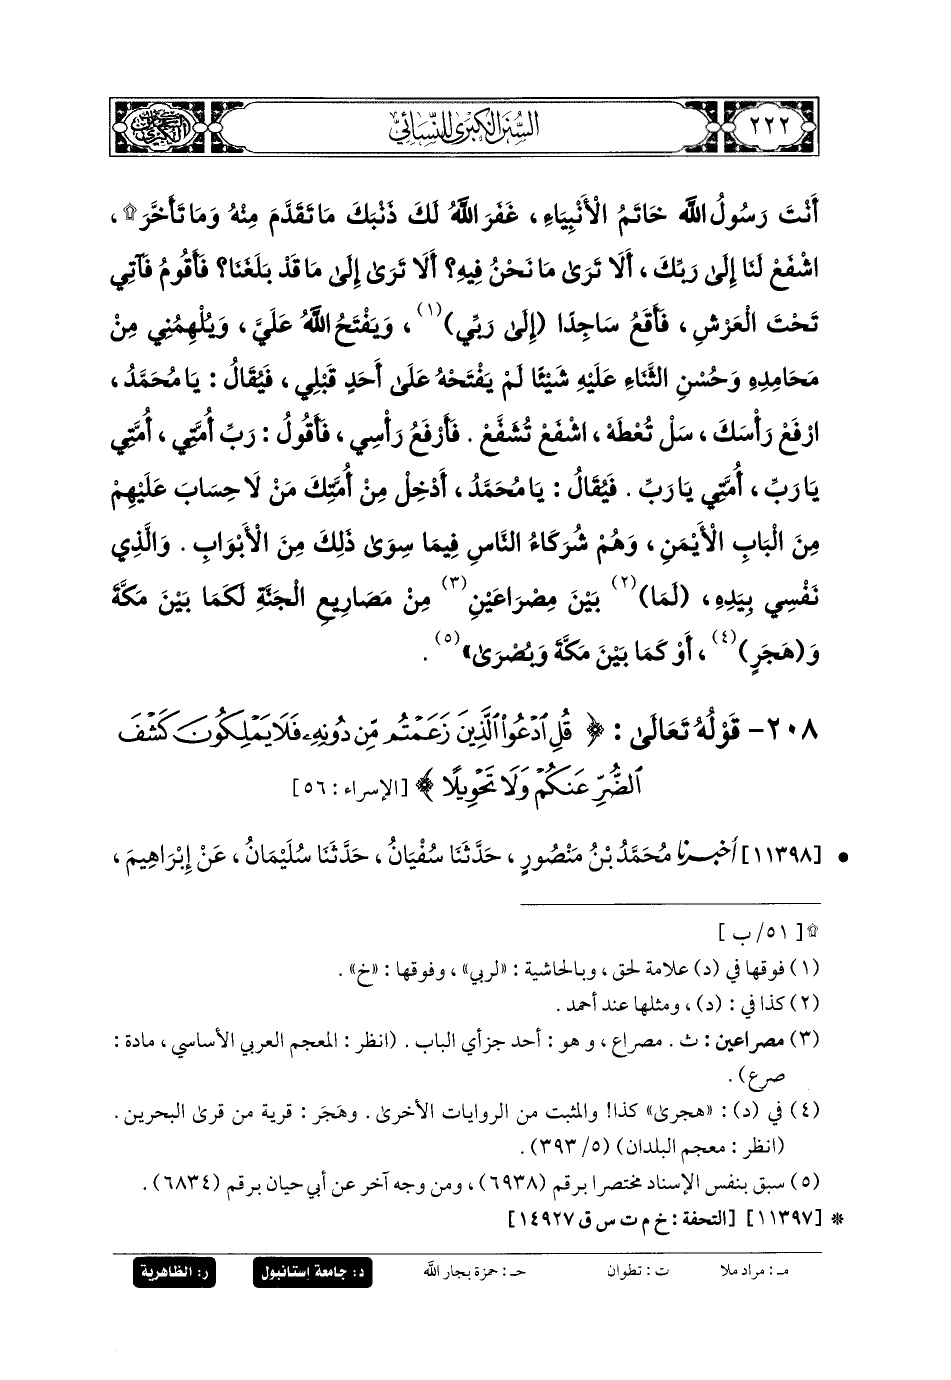 ٢٢٢
السُّنَنُ الكِبْرَىٰ لِلنَّسَائِيِّ
أَنْتَ رَسُولُ اللَّهِ خَاتَمُ الْأَنْبِيَاءِ، غَفَرَ اللَّهُ لَكَ ذَنْبَكَ مَا تَقَدَّمَ مِنْهُ وَمَا تَأَخَّرَ۩،
اشْفَعْ لَنَا إِلَىٰ رَبِّكَ، أَلَا تَرَىٰ مَا نَحْنُ فِيهِ؟ أَلَا تَرَىٰ إِلَىٰ مَا قَدْ بَلَغَنَا؟ فَأَقُومُ فَآتِي
تَحْتَ الْعَرْشِ، فَأَقَعُ سَاجِدًا (إِلَىٰ رَبِّي)(١)، وَيَفْتَحُ اللَّهُ عَلَيَّ، وَيُلْهِمُنِي مِنْ
مَحَامِدِهِ وَحُسْنِ الثَّنَاءِ عَلَيْهِ شَيْئًا لَمْ يَفْتَحْهُ عَلَىٰ أَحَدٍ قَبْلِي، فَيُقَالُ: يَا مُحَمَّدُ،
ارْفَعْ رَأْسَكَ، سَلْ تُعْطَهْ، اشْفَعْ تُشَفَّعْ. فَأَرْفَعُ رَأْسِي، فَأَقُولُ: رَبِّ أُمَّتِي، أُمَّتِي
يَا رَبِّ، أُمَّتِي يَا رَبِّ. فَيُقَالُ: يَا مُحَمَّدُ، أَدْخِلْ مِنْ أُمَّتِكَ مَنْ لَا حِسَابَ عَلَيْهِمْ
مِنَ الْبَابِ الْأَيْمَنِ، وَهُمْ شُرَكَاءُ النَّاسِ فِيمَا سِوَىٰ ذَلِكَ مِنَ الْأَبْوَابِ. وَالَّذِي
نَفْسِي بِيَدِهِ، (لَمَا)(٢) بَيْنَ مِصْرَاعَيْنِ(٣) مِنْ مَصَارِيعِ الْجَنَّةِ لَكَمَا بَيْنَ مَكَّةَ
وَ(هَجَرٍ)(٤)، أَوْ كَمَا بَيْنَ مَكَّةَ وَبُصْرَىٰ»(٥).
٢٠٨- قَوْلُهُ تَعَالَىٰ: ﴿قُلِ ٱدْعُوا۟ ٱلَّذِينَ زَعَمْتُم مِّن دُونِهِۦ فَلَا يَمْلِكُونَ كَشْفَ
ٱلضُّرِّ عَنكُمْ وَلَا تَحْوِيلًا﴾ [الإسراء: ٥٦]
• [١١٣٩٨] أخبرنا مُحَمَّدُ بْنُ مَنْصُورٍ، حَدَّثَنَا سُفْيَانُ، حَدَّثَنَا سُلَيْمَانُ، عَنْ إِبْرَاهِيمَ،
۩ [٥١/ ب]
(١) فوقها في (د) علامة لحق، وبالحاشية: «لربي»، وفوقها: «خ».
(٢) كذا في: (د)، ومثلها عند أحمد.
(٣) مصراعين: ث. مصراع، وهو: أحد جزأي الباب. (انظر: المعجم العربي الأساسي، مادة:
صرع).
(٤) في (د): «هجرىٰ» كذا! والمثبت من الروايات الأخرىٰ. وهَجَر: قرية من قرىٰ البحرين.
(انظر: معجم البلدان) (٥/ ٣٩٣).
(٥) سبق بنفس الإسناد مختصرا برقم (٦٩٣٨)، ومن وجه آخر عن أبي حيان برقم (٦٨٣٤).
* [١١٣٩٧] [التحفة: خ م ت س ق ١٤٩٢٧]
مـ: مراد ملا ت: تطوان حـ: حمزة بجار الله د: جامعة إستانبول ر: الظاهرية